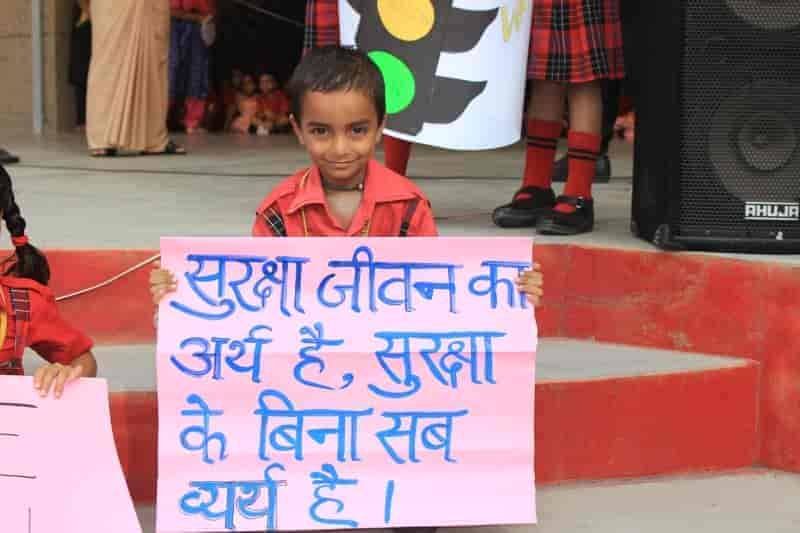 सुरक्षा जीवन का
अर्थ है, सुरक्षा
के बिना सब
व्यर्थ है।
AHUJA